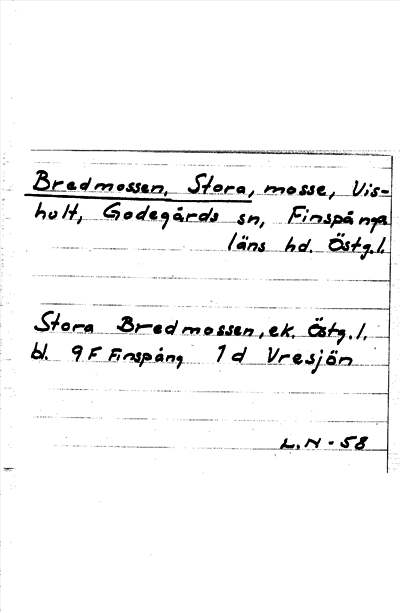 Bredmossen, Stora, mosse, Vis-
hult, Godegårds sn, Finspånga
läns hd. Östg.l.
Stora Bredmossen, ek. Östg.l.
bl. 9F Finspång 1d Vresjön
L.N-58